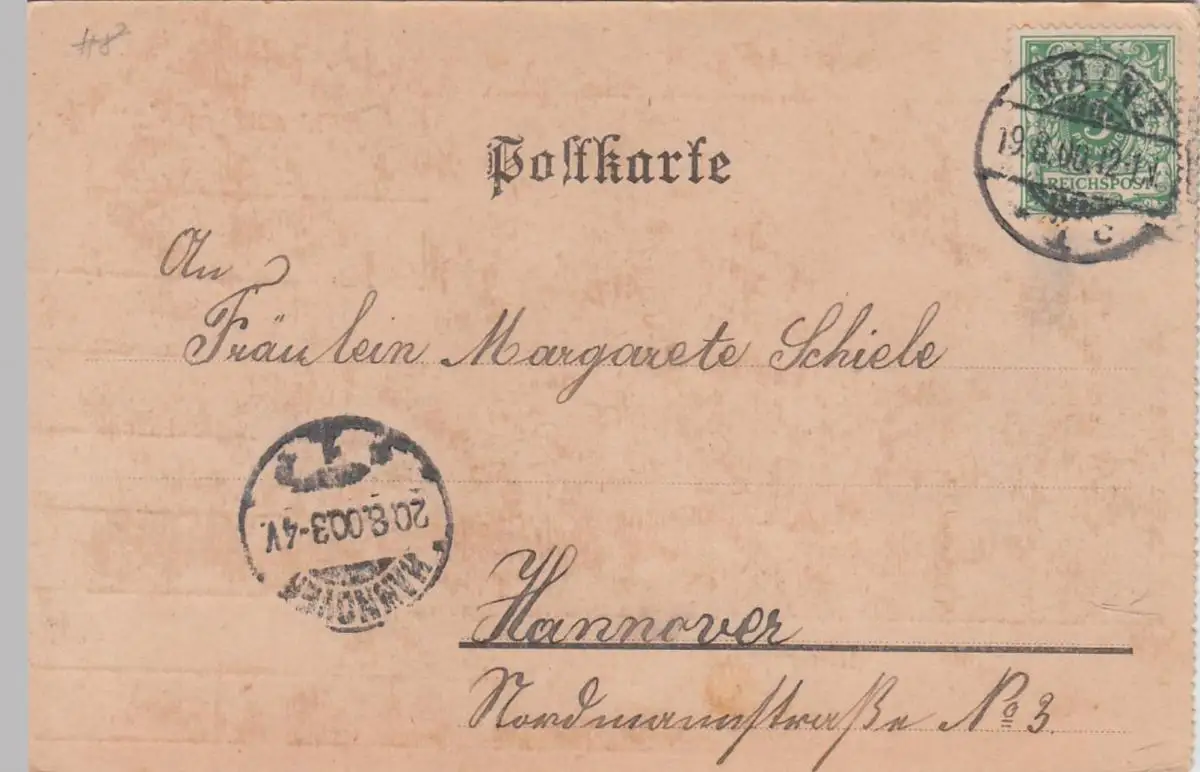 #8
Postkarte
MAINZ
19.8.00.12-1V.
REICHSPOST
5
c
An
Fräulein Margarete Schiele
20.8.00.3-4V.
HANNOVER
Hannover
Nordmannstraße No 3.